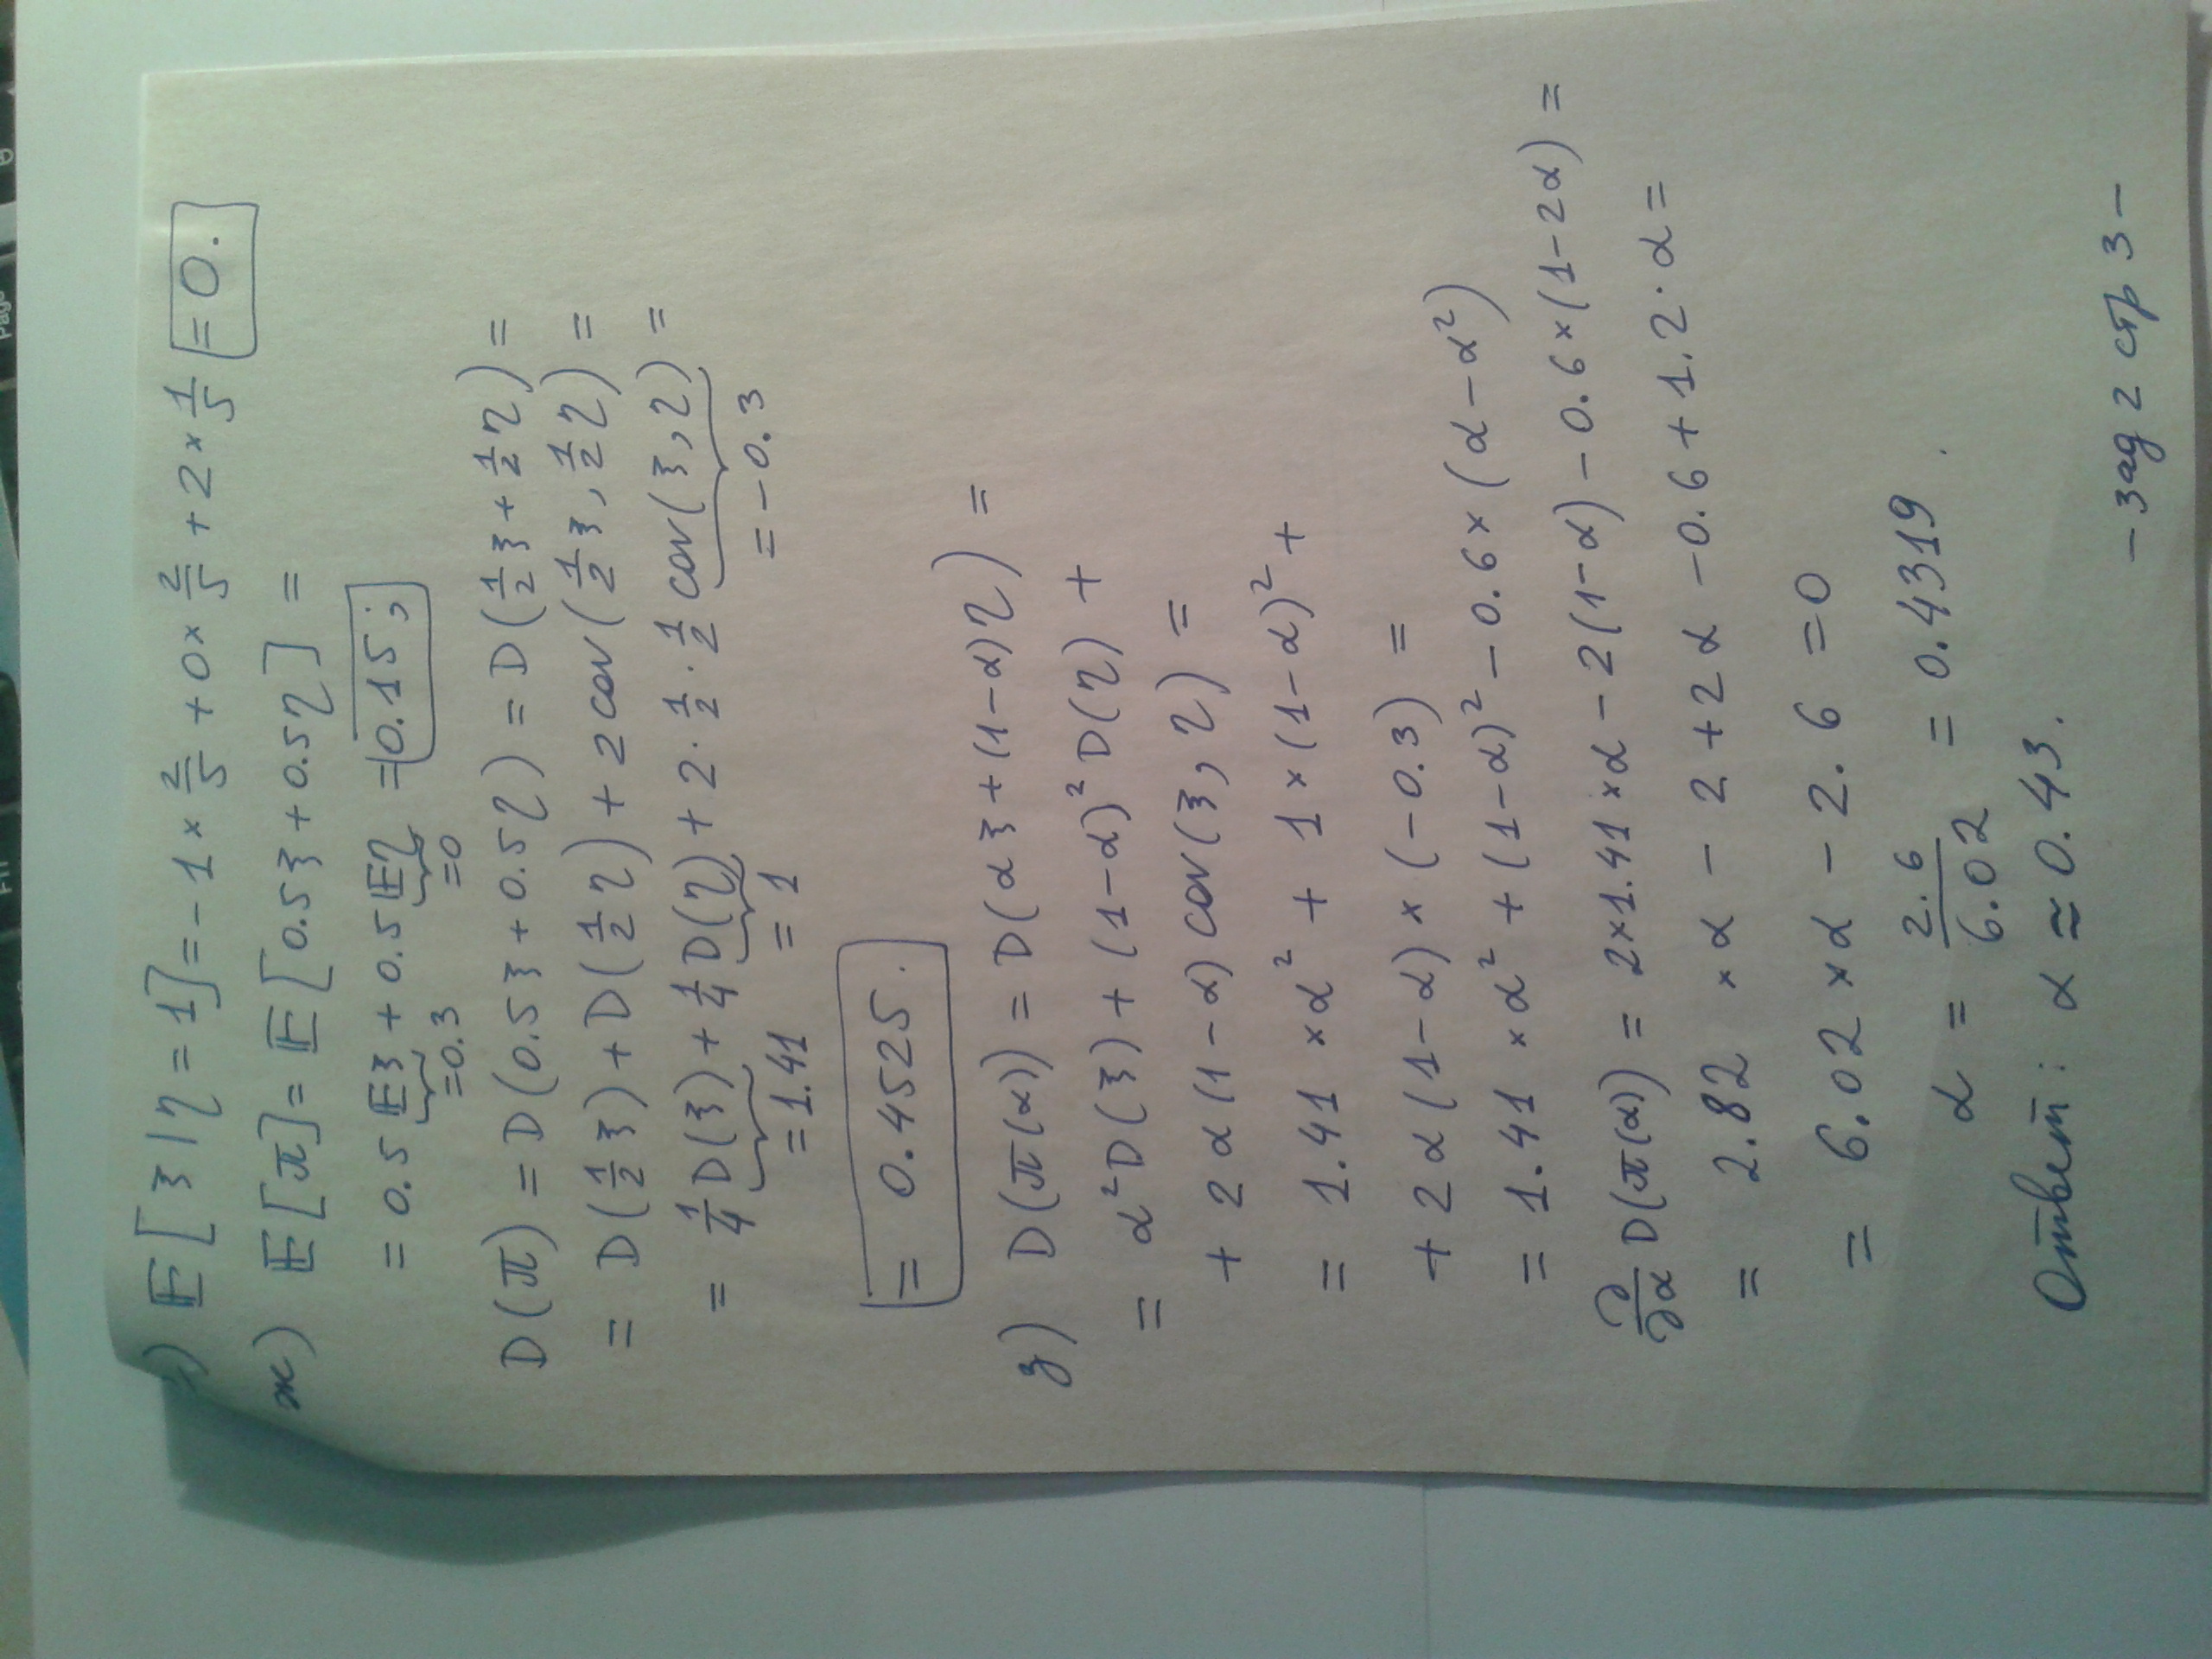 ) 𝔼[ξ|η = 1] = -1 × 2/5 + 0 × 2/5 + 2 × 1/5 = 0.
ж) 𝔼[π] = 𝔼[0.5ξ + 0.5η] =
= 0.5 𝔼ξ + 0.5 𝔼η = 0.15;
=0.3 =0
D(π) = D(0.5ξ + 0.5η) = D(1/2 ξ + 1/2 η) =
= D(1/2 ξ) + D(1/2 η) + 2cov(1/2 ξ, 1/2 η) =
= 1/4 D(ξ) + 1/4 D(η) + 2 · 1/2 · 1/2 cov(ξ, η) =
= 1.41 = 1 = -0.3
= 0.4525.
з) D(π(α)) = D(αξ + (1-α)η) =
= α²D(ξ) + (1-α)² D(η) +
+ 2α(1-α) cov(ξ, η) =
= 1.41 × α² + 1 × (1-α)² +
+ 2α(1-α) × (-0.3) =
= 1.41 × α² + (1-α)² - 0.6 × (α - α²)
∂/∂α D(π(α)) = 2×1.41×α - 2(1-α) - 0.6×(1-2α) =
= 2.82 × α - 2 + 2α - 0.6 + 1.2 · α =
= 6.02 × α - 2.6 = 0
α = 2.6/6.02 = 0.4319.
Ответ: α ≈ 0.43.
- зад 2 стр 3 -